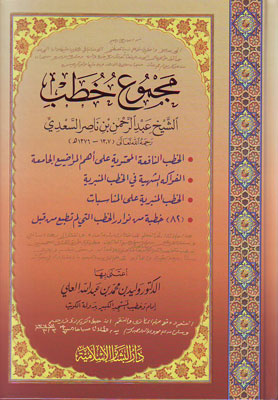 مجموع خطب
الشيخ عبد الرحمن بن ناصر السعدي
رحمه الله تعالى (١٣٠٧ - ١٣٧٦ هـ)
الخطب النافعة المحتوية على أهم المواضيع الجامعة
الفواكه الشهية في الخطب المنبرية
الخطب المنبرية على المناسبات
(٨٢) خطبة من نوادر الخطب التي لم تطبع من قبل
اعتنى بها
الدكتور وليد بن محمد بن عبد الله العلي
إمام وخطيب المسجد الكبير بدولة الكويت
دار البشائر الإسلامية